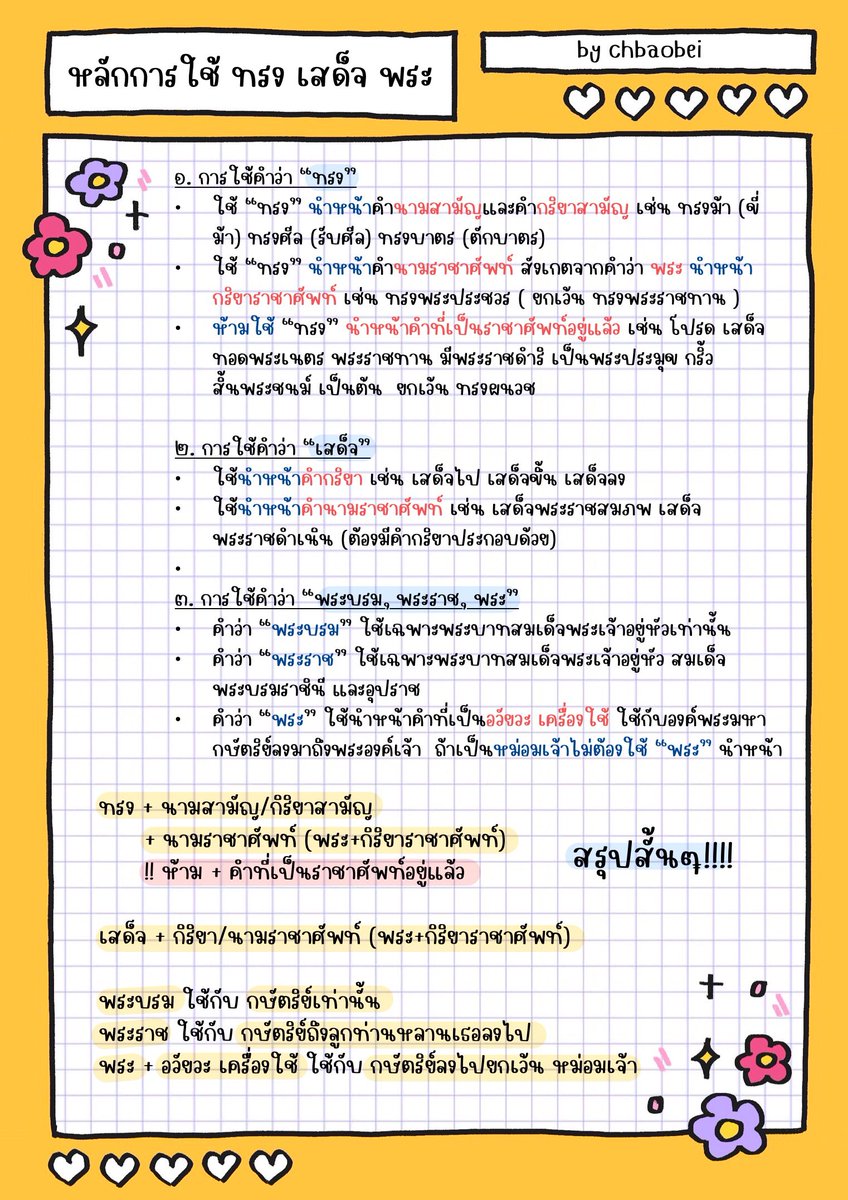 หลักการใช้ ทรง เสด็จ พระ
by chbaobei
๑. การใช้คำว่า “ทรง”
• ใช้ “ทรง” นำหน้าคำนามสามัญและคำกริยาสามัญ เช่น ทรงม้า (ขี่
ม้า) ทรงศีล (รับศีล) ทรงบาตร (ตักบาตร)
• ใช้ “ทรง” นำหน้าคำนามราชาศัพท์ สังเกตจากคำว่า พระ นำหน้า
กริยาราชาศัพท์ เช่น ทรงพระประชวร ( ยกเว้น ทรงพระราชทาน )
• ห้ามใช้ “ทรง” นำหน้าคำที่เป็นราชาศัพท์อยู่แล้ว เช่น โปรด เสด็จ
ทอดพระเนตร พระราชทาน มีพระราชดำริ เป็นพระประมุข กริ้ว
สิ้นพระชนม์ เป็นต้น ยกเว้น ทรงผนวช
๒. การใช้คำว่า “เสด็จ”
• ใช้นำหน้าคำกริยา เช่น เสด็จไป เสด็จขึ้น เสด็จลง
• ใช้นำหน้าคำนามราชาศัพท์ เช่น เสด็จพระราชสมภพ เสด็จ
พระราชดำเนิน (ต้องมีคำกริยาประกอบด้วย)
•
๓. การใช้คำว่า “พระบรม, พระราช, พระ”
• คำว่า “พระบรม” ใช้เฉพาะพระบาทสมเด็จพระเจ้าอยู่หัวเท่านั้น
• คำว่า “พระราช” ใช้เฉพาะพระบาทสมเด็จพระเจ้าอยู่หัว สมเด็จ
พระบรมราชินี และอุปราช
• คำว่า “พระ” ใช้นำหน้าคำที่เป็นอวัยวะ เครื่องใช้ ใช้กับองค์พระมหา
กษัตริย์ลงมาถึงพระองค์เจ้า ถ้าเป็นหม่อมเจ้าไม่ต้องใช้ “พระ” นำหน้า
ทรง + นามสามัญ/กิริยาสามัญ
+ นามราชาศัพท์ (พระ+กิริยาราชาศัพท์)
!! ห้าม + คำที่เป็นราชาศัพท์อยู่แล้ว
สรุปสั้นๆ!!!!
เสด็จ + กิริยา/นามราชาศัพท์ (พระ+กิริยาราชาศัพท์)
พระบรม ใช้กับ กษัตริย์เท่านั้น
พระราช ใช้กับ กษัตริย์ถึงลูกท่านหลานเธอลงไป
พระ + อวัยวะ เครื่องใช้ ใช้กับ กษัตริย์ลงไปยกเว้น หม่อมเจ้า